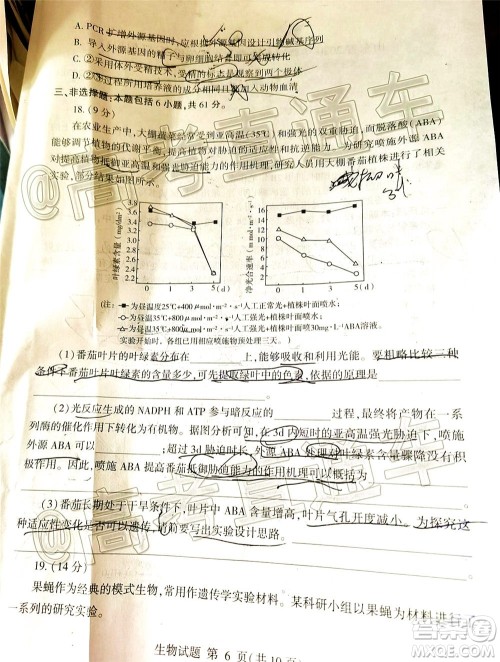 A. PCR 扩增外源基因时，应根据外源基因设计引物碱基序列
B. 导入外源基因的精子与卵细胞结合即可完成转化
C. ②采用体外受精技术，受精的标志是观察到两个极体
D. ③过程所用培养液的成分相同且都加入动物血清
三、非选择题：本题包括 6 小题，共 61 分。
18. (9 分)
在农业生产中，大棚蔬菜经常受到亚高温(35℃)和强光的双重胁迫，而脱落酸(ABA)
能够调节植物的代谢平衡，提高植物对胁迫的适应能力。为研究喷施外源 ABA
对提高植物抵御亚高温和强光胁迫能力的作用机理，研究人员用大棚番茄植株进行了相关
实验，部分结果如图所示。
叶绿素含量(mg/dm²)
3.8
3.6
3.4
3.2
3.0
2.8
2.6
2.4
2.2
0 1 3 5 (d)
净光合速率
16
14
12
10
8
6
4
2
0 1 3 5 (d)
(注：■为昼温度25℃+400μmol·m⁻²·s⁻¹人工正常光+植株叶面喷水；
○为昼温35℃+800μmol·m⁻²·s⁻¹人工强光+植株叶面喷水；
△为昼温35℃+800μmol·m⁻²·s⁻¹人工强光+植株叶面喷30mg·L⁻¹ABA溶液。
实验开始时，各组已用相应喷施物预处理三天。)
(1)番茄叶片的叶绿素分布在上，能够吸收和利用光能。要粗略比较三种
条件下番茄叶片叶绿素的含量多少，可先提取绿叶中的色素，依据的原理是
。
(2)光反应生成的 NADPH 和 ATP 参与暗反应的过程，最终将产物在一系
列酶的催化作用下转化为有机物。据图分析可知，在 3d 内短时的亚高温强光胁迫下，喷施
外源 ABA 可以；超过 3d 后，喷施 ABA 对叶绿素含量等几乎没有积
极作用。因此，喷施 ABA 提高番茄抵御胁迫能力的作用机理可以概括为
。
(3)番茄长期处于干旱条件下，叶片中 ABA 含量增高，叶片气孔开度减小。为探究这
种适应性变化是否可以遗传，请简要写出实验设计思路。
。
19. (14 分)
果蝇作为经典的模式生物，常用作遗传学实验材料。某科研小组以果蝇为材料进行
一系列的研究实验。
生物试题 第 6 页(共 10 页)